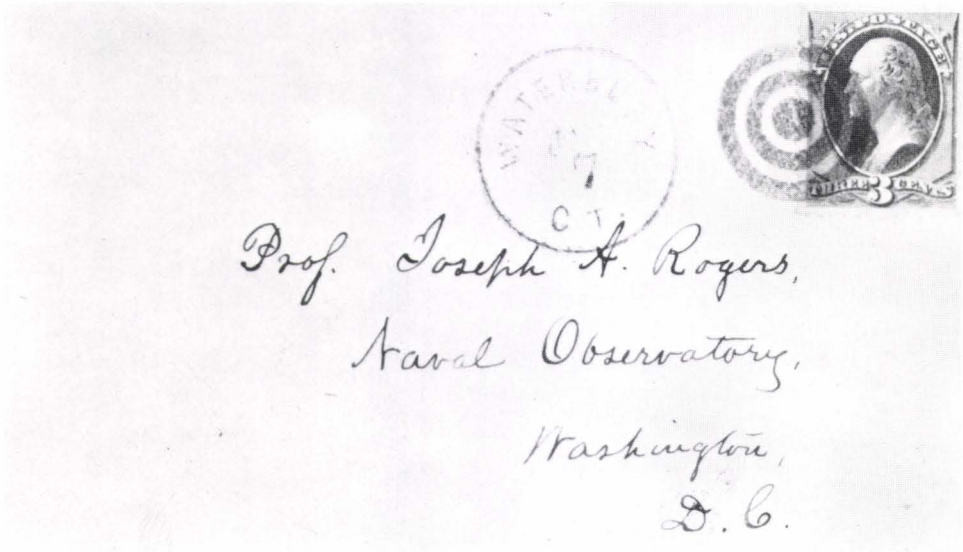 U.S. POSTAGE
THREE 3 CENTS
WATERBURY
7
CT.
Prof. Joseph A. Rogers,
Naval Observatory,
Washington,
D. C.